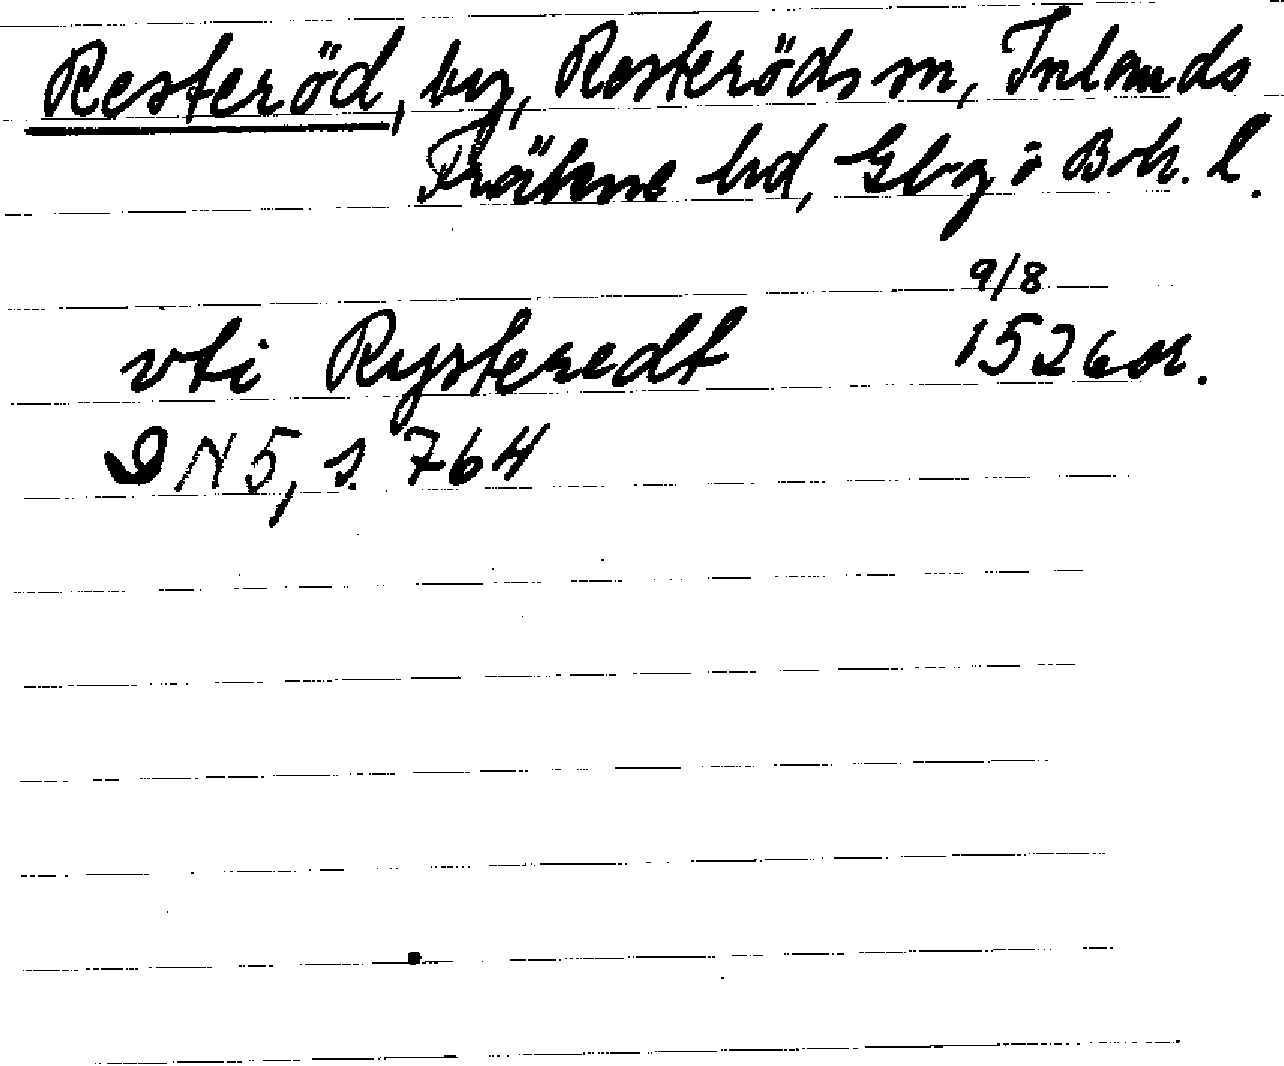 Resteröd, by, Resteröds sn, Inlands
Fräkne hd, Gbg o Boh. l.
9/8
vti Rysteredt 1526 or.
DN 5, s. 764